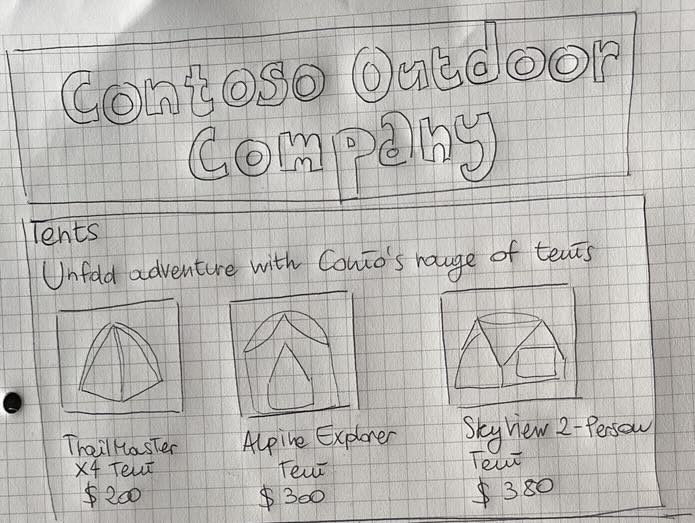 Contoso Outdoor
Company
Tents
Unfold adventure with Conto's range of tents
TrailMaster
X4 Tent
$ 200
Alpine Explorer
Tent
$ 300
SkyView 2-Person
Tent
$ 380